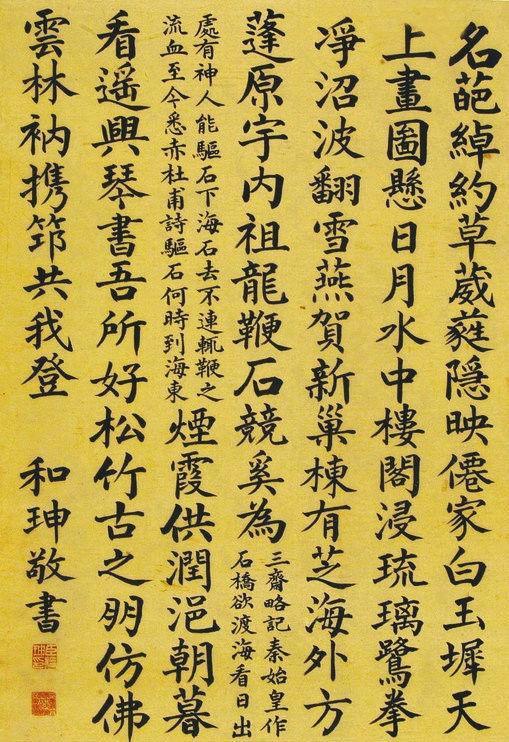 名葩綽約草葳蕤隱映僊家白玉墀天
上畫圖懸日月水中樓閣浸琉璃鷺拳
凈沼波翻雪燕賀新巢棟有芝海外方
蓬原宇内祖龍鞭石競奚為
三齋略記秦始皇作
石橋欲渡海看日出
處有神人能驅石下海石去不連輒鞭之
流血至今悉赤杜甫詩驅石何時到海東
煙霞供潤浥朝暮
看遙興琴書吾所好松竹古之朋仿佛
雲林衲携筇共我登
和珅敬書